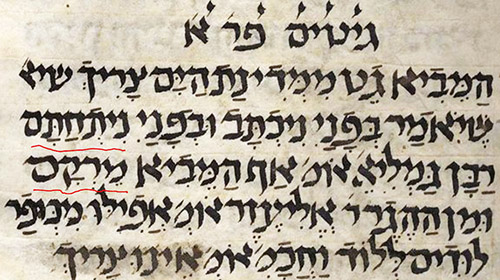 גיטים פר א
הַמֵּבִיא גֵט מִמְּדִינַת הַיָּם צָרִיךְ שיא
שֶׁיֹּאמַר בְּפָנַי נִיכְתַּב וּבְפָנַי נִיתְחַתַּם
רַבָּן גַּמְלִיאֵ' אומ' אַף הַמֵּבִיא מֵרֶקֶם
וּמִן הַהֶגֶר ר אֱלִיעֶזֶר אומ' אֲפִילּוּ מִכּוּפַר
לוּדִים לְלוּד וַחֲכָמ' אומ' אֵינוּ צָרִיךְ